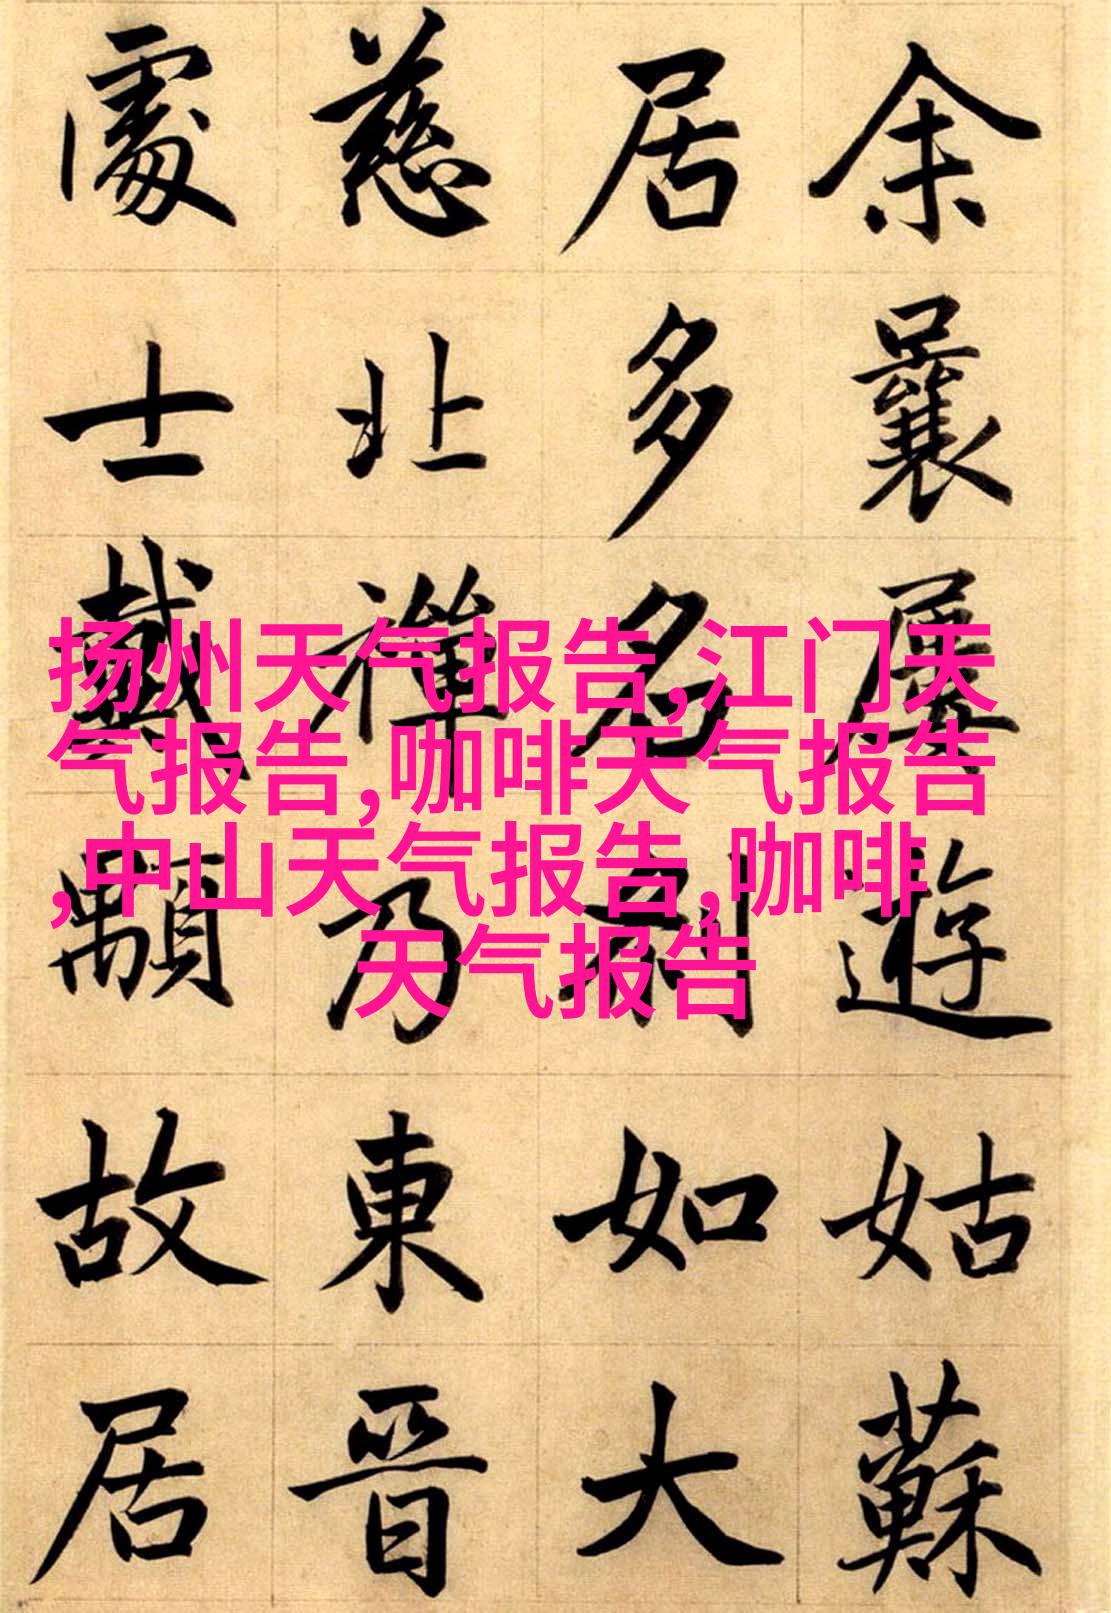 余曩屢遊姑蘇
居多名刹如大
慈北禅乃東晋
處士戴顒故居
扬州天气报告,江门天
气报告,咖啡天气报告
,中山天气报告,咖啡
天气报告